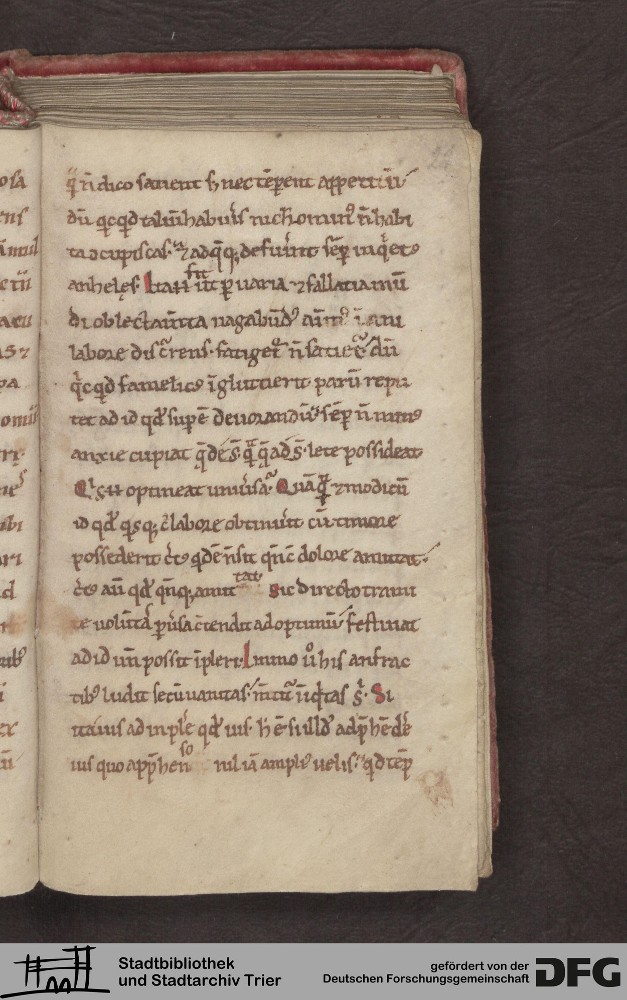 24
q̄ n̄ dico satient s; nec tēperent appetitū
dū qicqid taliū habūis nichominꝰ n̄ habi
ta ɔcupiscas. ⁊ ad q̄q; defuīnt sēp inqiet9
anheles. Ita fit ut p uaria ⁊ fallacia mū
di oblectam̄ta uagabūdꝰ animꝰ inani
labore discurrens. fatiget̃ n̄ satiet̃. dū
qicqid famelic9 īgluttierit parū repu
tet ad id qd' supē deuorandū. sēp n̄ min9
anxie cupiat q̄ desūt. q̄ q̄ adsūt. lete possideat
Qis .n. optineat uniūsa. Quāq̄ ⁊ modicū
id qd' qisq; c̄ labore obtinuīt cū timore
possederit c̄t9 qidē n̄ sit qn̄ c̄ dolore amittat.
c̄t9 aū qd' qn̄q; amittat. Sic directo trami
te uolūtas puīsa c̄tendit ad optimū. festinat
ad id un̄ possit īpleri. Immo ū his anfrac
tibꝰ ludit secū uanitas. m̄tit̃ iniqitas s̄. Si
ita uis adimplē qd' uis. h̄ ē si illd' adp̄hēdē
uis quo app̄henso nil iā ampliꝰ uelis. qid tēp
Stadtbibliothek
und Stadtarchiv Trier
gefördert von der
Deutschen Forschungsgemeinschaft
DFG